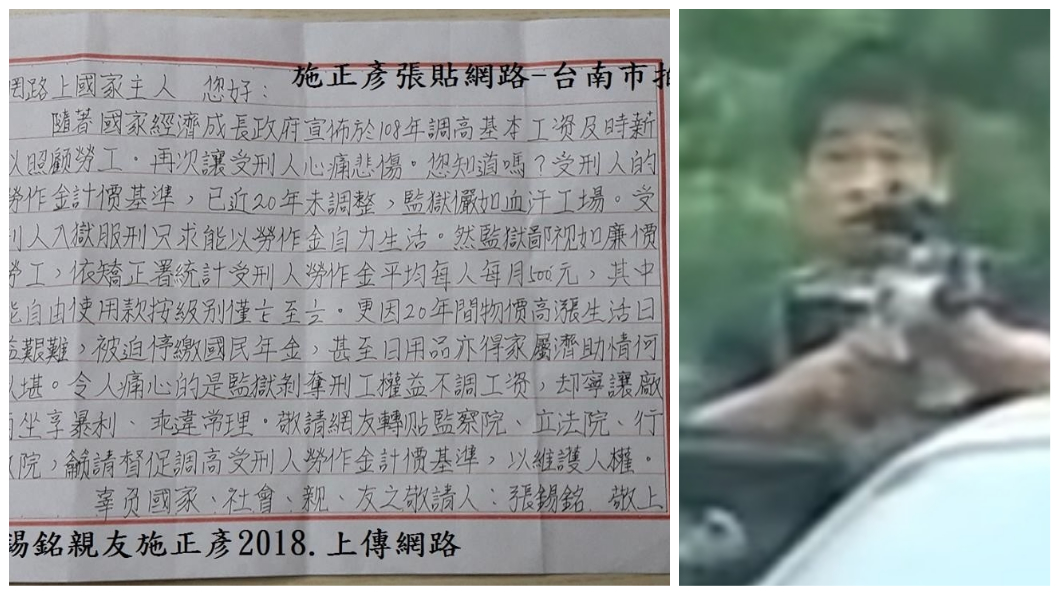 施正彥張貼網路-台南市
網路上國家主人 您好：
隨著國家經濟成長政府宣佈於108年調高基本工资及時薪
以照顧勞工。再次讓受刑人心痛悲傷。您知道嗎？受刑人的
勞作金計價基準，已近20年未調整，監獄儼如血汗工場。受
刑人入獄服刑只求能以勞作金自力生活。然監獄鄙视如廉價
勞工，依矯正署統計受刑人勞作金平均每人每月500元，其中
能自由使用款按級別僅 至 。更因20年間物價高漲生活日
益艱難，被迫停繳國民年金，甚至日用品亦得家屬濟助情何
以堪。令人痛心的是監獄剝奪刑工權益不調工资，却寧讓廠
商坐享暴利、乖違常理。敬請網友轉貼監察院、立法院、行
政院，籲請督促調高受刑人勞作金計價基準，以維護人權。
辜负國家、社會、親、友之敬請人：張錫銘 敬上
錫銘親友施正彥2018.上傳網路